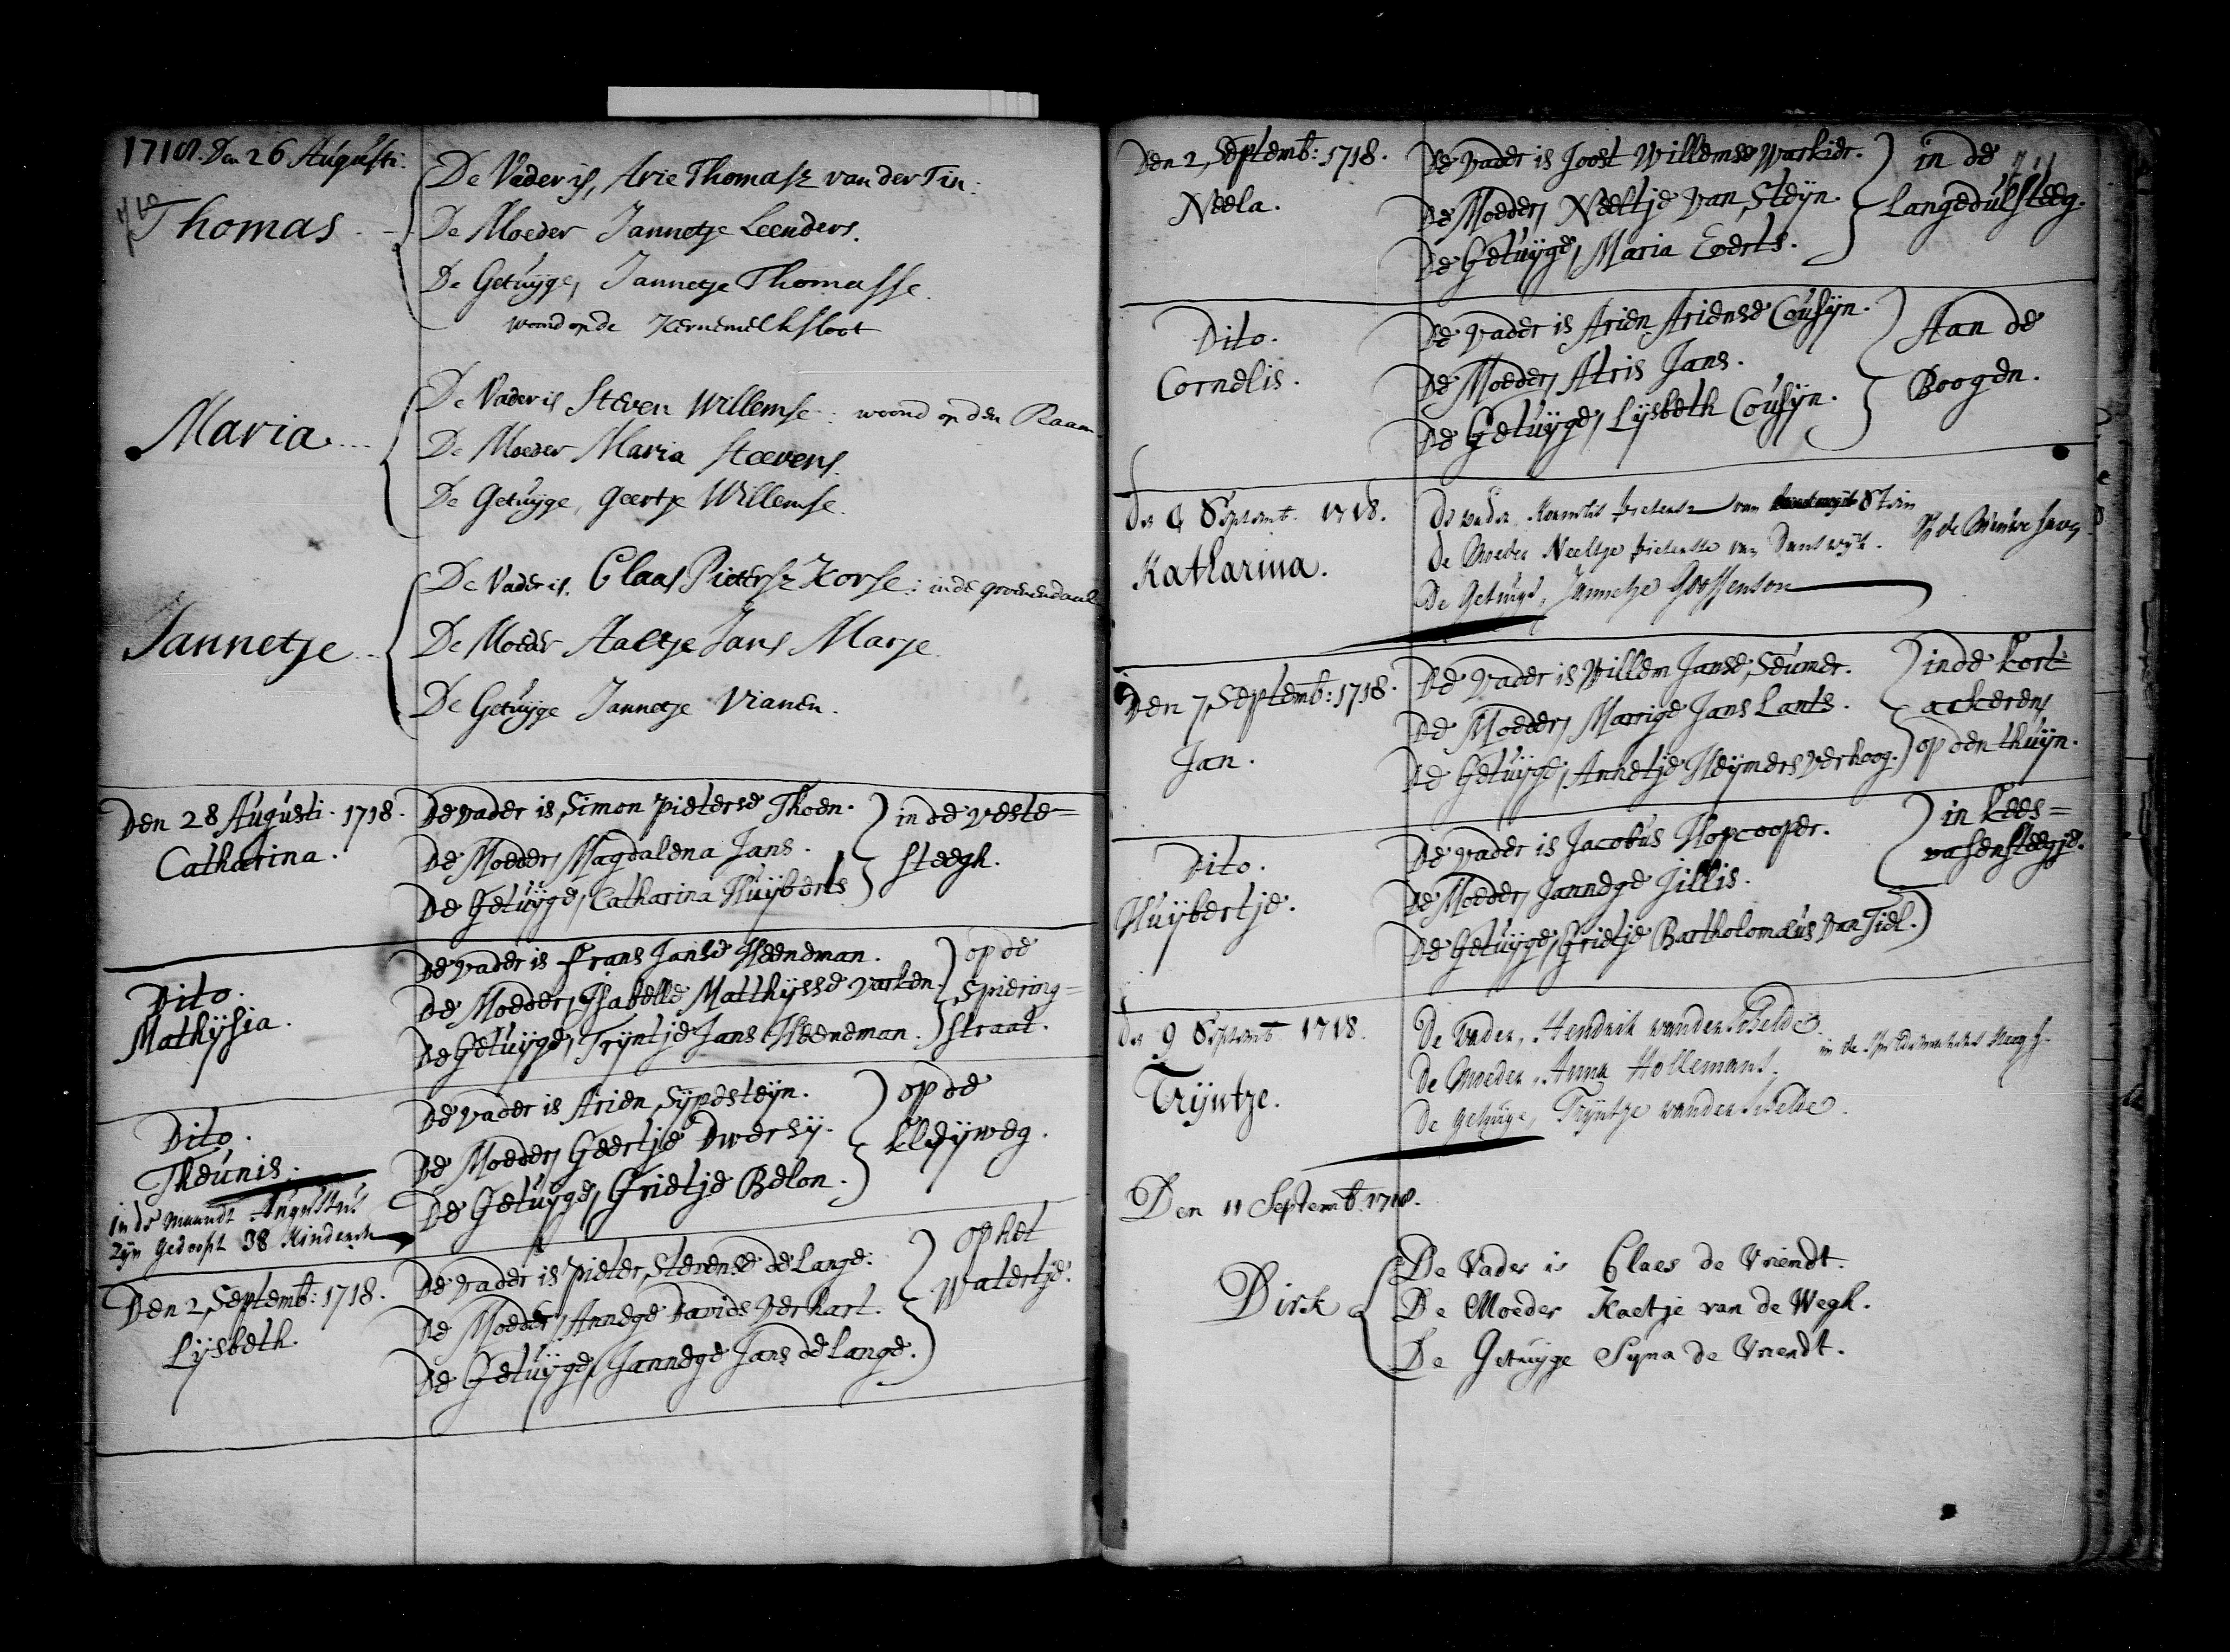 1718. Den 26 Augusti.
Thomas
De Vader is, Arie Thomasz van der Tin.
De Moeder Jannetje Leenders.
De Getuyge, Jannetje Thomasse.
woond op de Kernemelksloot
Maria
De Vader is Steven Willemse: woond op den Raam
De Moeder Maria Steevens.
De Getuyge, Geertje Willemse.
Jannetje
De Vader is. Claas Pietersz Korse: inde groenendaal
De Moeder Aaltje Jans Marje.
De Getuyge Jannetje Vianen.
Den 28 Augusti. 1718.
Catharina.
De Vader is Simon Pieterse Thoen.
De Moeder, Magdalena Jans.
De Getuyge, Catharina Huyberts
in de veste=
steegh.
Dito.
Mathysia.
De Vader is Frans Janse Heeneman.
De Moeder, Isabelle Matthysse Varken.
De Getuyge, Tryntje Jans Heeneman.
op de
Spiering=
straat.
Dito.
Theunis.
De Vader is Arien Sypesteyn.
De Moeder, Geertje Dwersy.
De Getuyge, Grietje Belon.
op de
Kleyweg.
In de maandt Augustus
zyn gedoopt 38 Kinderen
Den 2 Septemb: 1718.
Lysbeth.
De Vader is Pieter Stevense de Lange.
De Moeder, Annege Davids Verhart.
De Getuyge, Jannege Jans de Lange.
op het
Watertje.
Den 2 Septemb: 1718.
Neela.
De Vader is Joost Willemse Warkier.
De Moeder, Neeltje van Steyn.
De Getuyge, Maria Everts.
in de
Langedulsteeg.
Dito.
Cornelis.
De Vader is Arien Ariense Cousyn.
De Moeder, Atris Jans.
De Getuyge, Lysbeth Cousyn.
Aan de
Boogen.
den 4 Septemb. 1718.
Katharina.
De vader Kornelis Pieterse van Stein
De Moeder Neeltje Pieterse van Santwyk.
De Getuyge, Jannetje Goossenson
Op de Nieuwe haven
Den 7 Septemb: 1718.
Jan.
De Vader is Willem Janse Seumer.
De Moeder, Marrige Jans Lants.
De Getuyge, Annetje Heymers Verhoog.
inde kort
aakeren,
op den thuyn.
Dito.
Huybertje.
De Vader is Jacobus Hopcooper.
De Moeder, Jannege Jillis.
De Getuyge, Grietje Bartholomeus van Tiel.
in Kees=
vasensteegje.
den 9 Septemb 1718.
Tryntje.
De Vader, Hendrik vander Schelde.
De Moeder, Anna Hollemans.
De getuige, Tryntje vander Schelde.
in de
Den 11 Septemb. 1718.
Dirk
De Vader is Claes de Vriendt.
De Moeder Kaetje van de Wegh.
De Getuyge Syna de Vriendt.